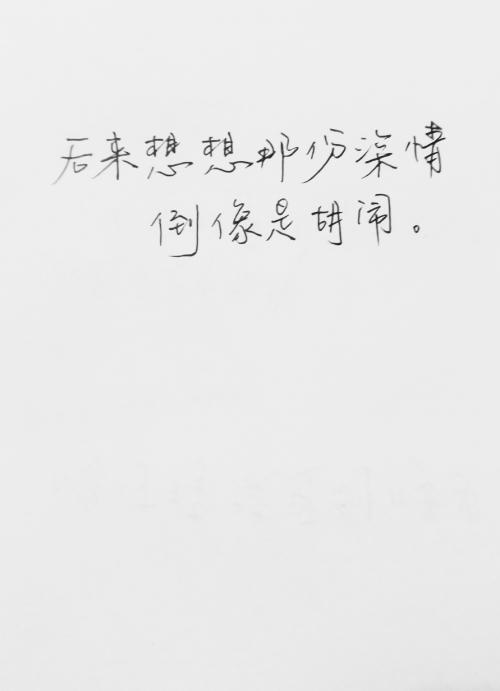 后来想想那份深情
倒像是胡闹。